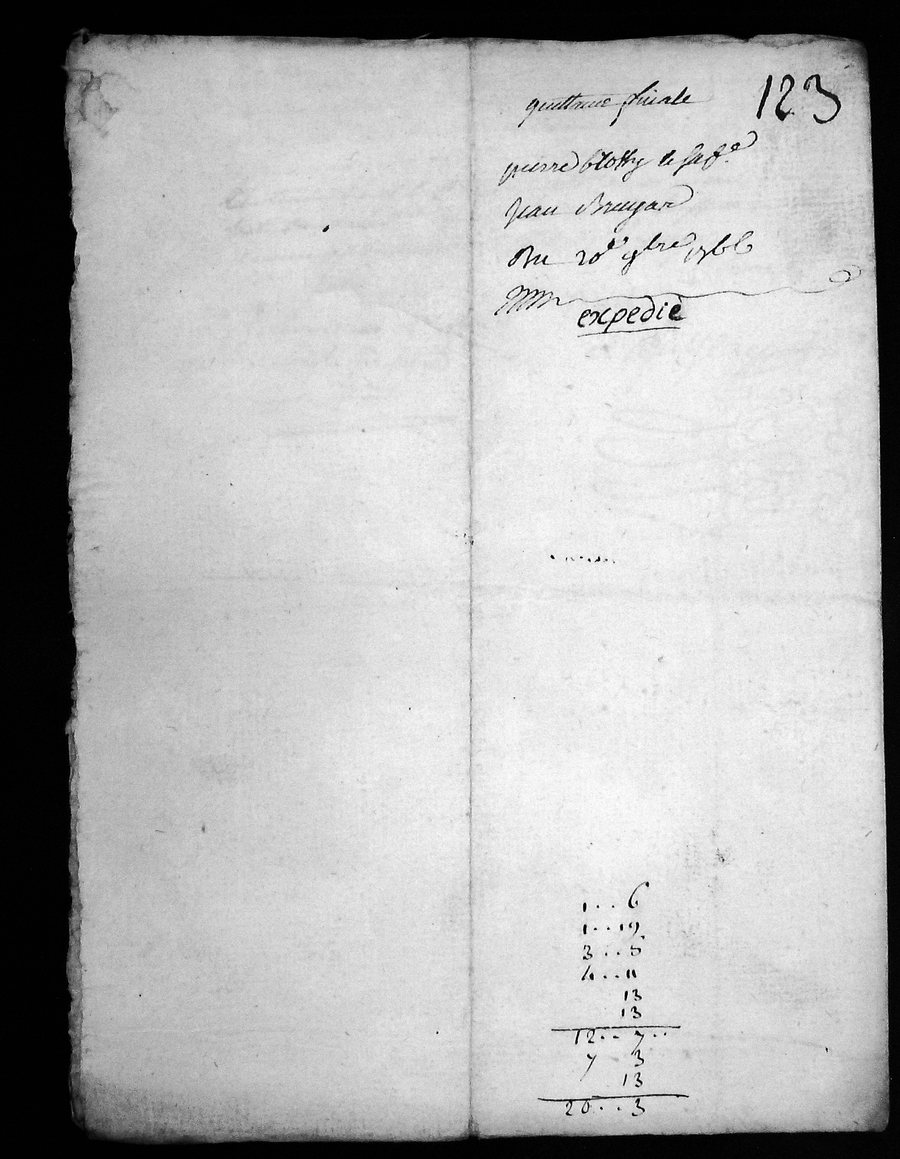 123
quittance finale
pierre
Jean Brugar
Du 20e 9bre 1766
expedié
1 .. 6
1 .. 19
3 .. 5
4 .. 11
13
13
12 .. 7 ..
7 3
13
20 .. 3